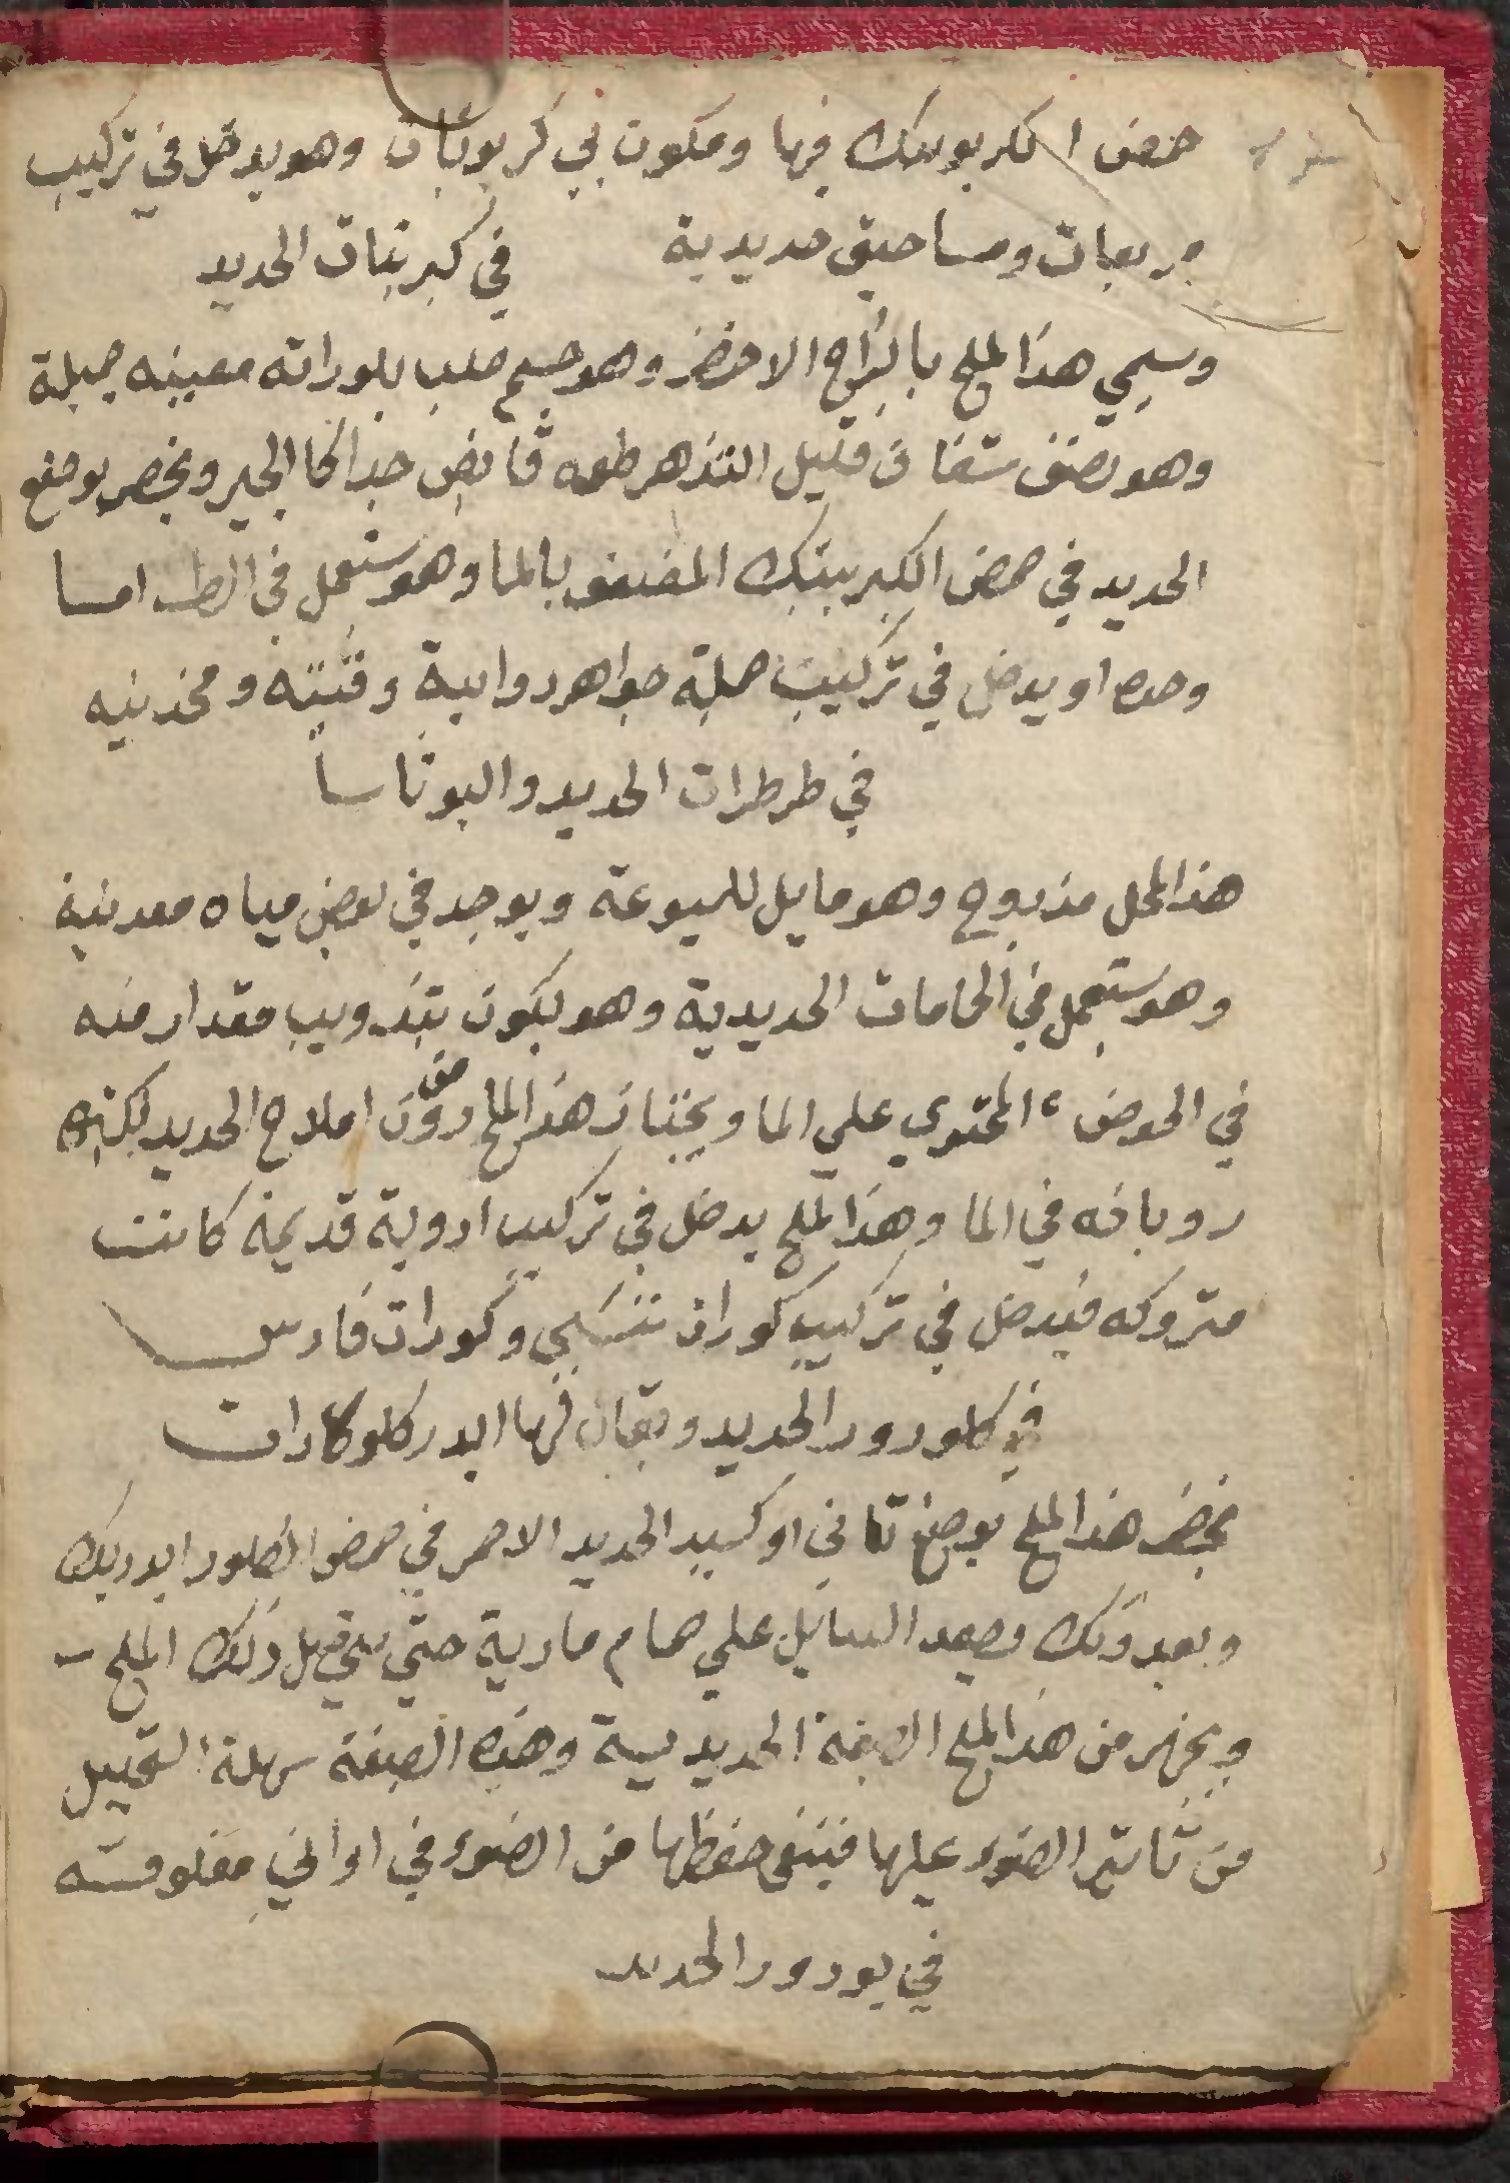 حمض الكربونيك فيها ومكون بي كربونات وهو يدخل في تركيب
مربعات ومساحيق حديدية في كبريتات الحديد
وسمي هذا الملح بالزاج الاخضر وهو جسم صلب بلوراته معينيه جميلة
وهو نصف شفاف قليل التذهر طعمه قابض جدا كالحبر ويحضر بوضع
الحديد في حمض الكبريتيك المضعف بالما وهو يستعمل في الطب اما
وحده او يدخل في تركيب جملة جواهر دوايية وقتيه ومخذنيه
في طرطرات الحديد والبوتاسا
هذا المحل مذبوح وهو مايل للميوعة ويوجد في بعض مياه معدنية
وهو يستعمل في الحامات الحديدية وهو يكون بتذويب مقدار منه
في الحوض المحتوي علي الما ويختار هذا الملح من دون املاح الحديد لكثرة
دوبانه في الما وهذا الملح يدخل في تركيب ادوية قديمة كانت
متروكه فيدخل في تركيب كورات ننسي وكورات فارس
في كلورور الحديد ويقال فيها ايدركلوكارات
يحضر هذا الملح بوضع تاني اوكسيد الحديد الاحمر في حمض الكلور ايدريك
وبعد ذلك وصعد السايل علي حمام مارية حتي ذلك الملح
ويجهز من هذا الملح الصبغة الحديدية وهذه الصبغة سهلة التحييل
من تاتير الضوء عليها فينبغي حفظها من الضوء في اواني مغلوقته
في يودور الحديد